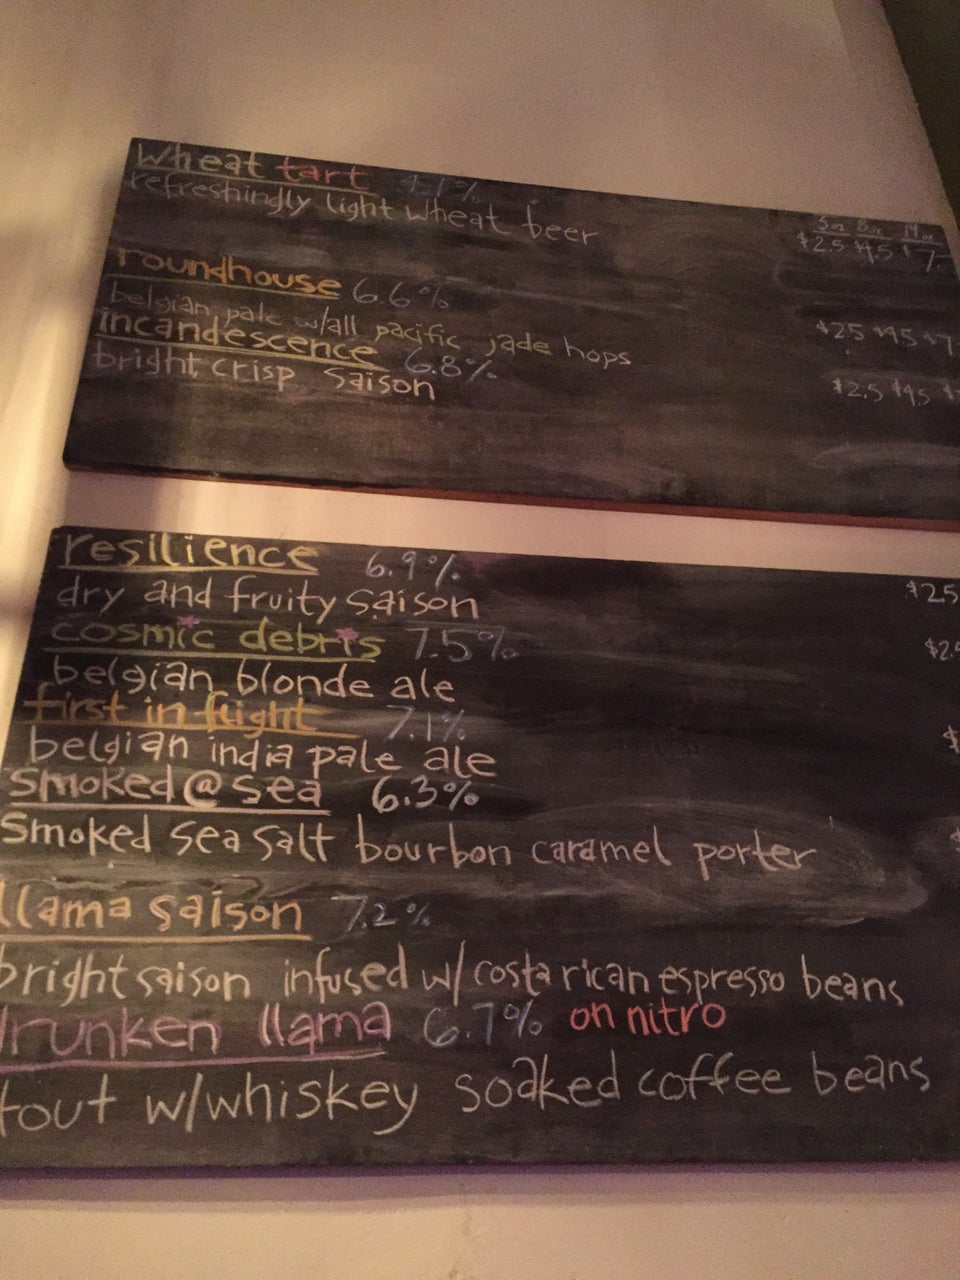 wheat tart 4.1%
refreshingly light wheat beer
5oz 8oz 14oz
$2.5 $4.5 $7
roundhouse 6.6%
belgian pale w/all pacific jade hops
$2.5 $4.5 $7
incandescence 6.8%
bright, crisp saison
$2.5 $4.5
resilience 6.9%
dry and fruity saison
$2.5
cosmic debris 7.5%
belgian blonde ale
first in flight 7.1%
belgian india pale ale
smoked@sea 6.3%
smoked sea salt bourbon caramel porter
llama saison 7.2%
bright saison infused w/costa rican espresso beans
drunken llama 6.7% on nitro
tout w/whiskey soaked coffee beans